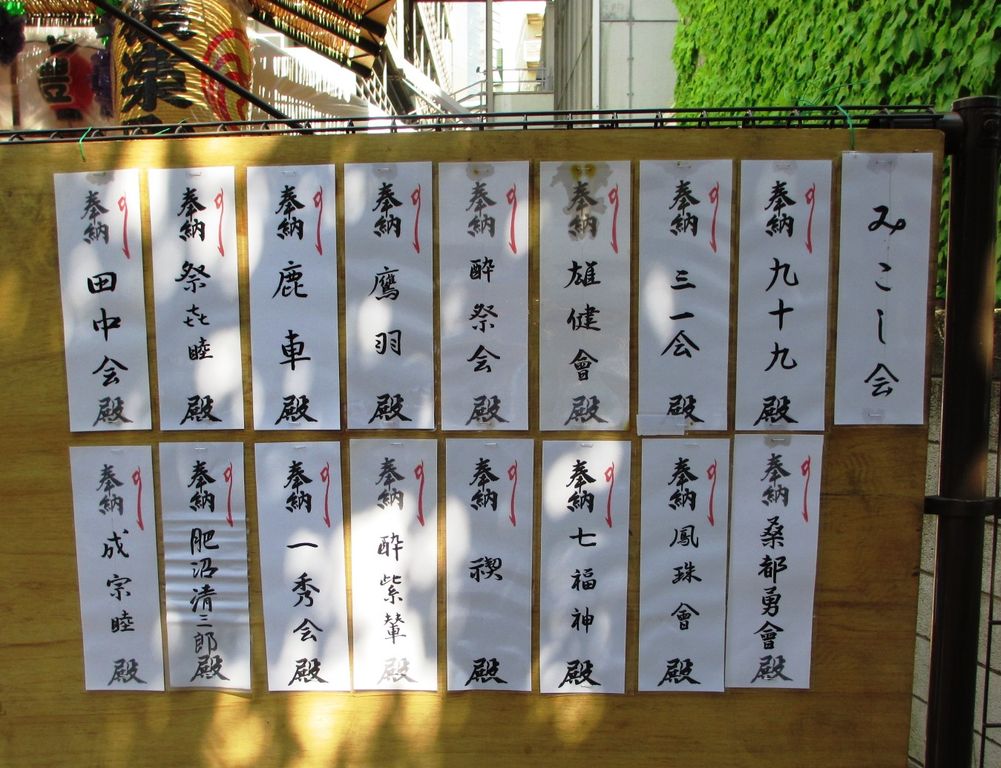 みこし会
奉納 九十九 殿
奉納 三一会 殿
奉納 雄健會 殿
奉納 酔祭会 殿
奉納 鷹羽 殿
奉納 鹿車 殿
奉納 祭㐂睦 殿
奉納 田中会 殿
奉納 桑都勇會 殿
奉納 鳳珠會 殿
奉納 七福神 殿
奉納 禊 殿
奉納 酔紫輦 殿
奉納 一秀会 殿
奉納 肥沼清三郎 殿
奉納 成宗睦 殿
豊
栄